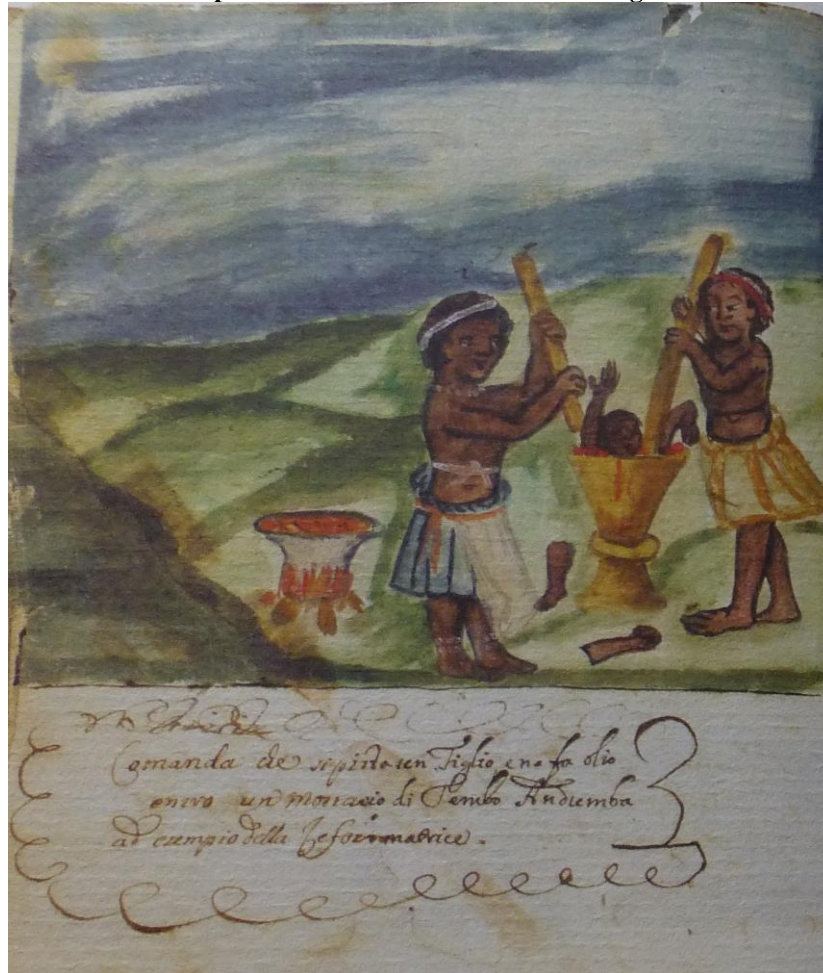 Comanda che si pisti un Figlio e ne fa olio
entro un mortaio di Tembo Andumba
ad esempio della Reformatrice.